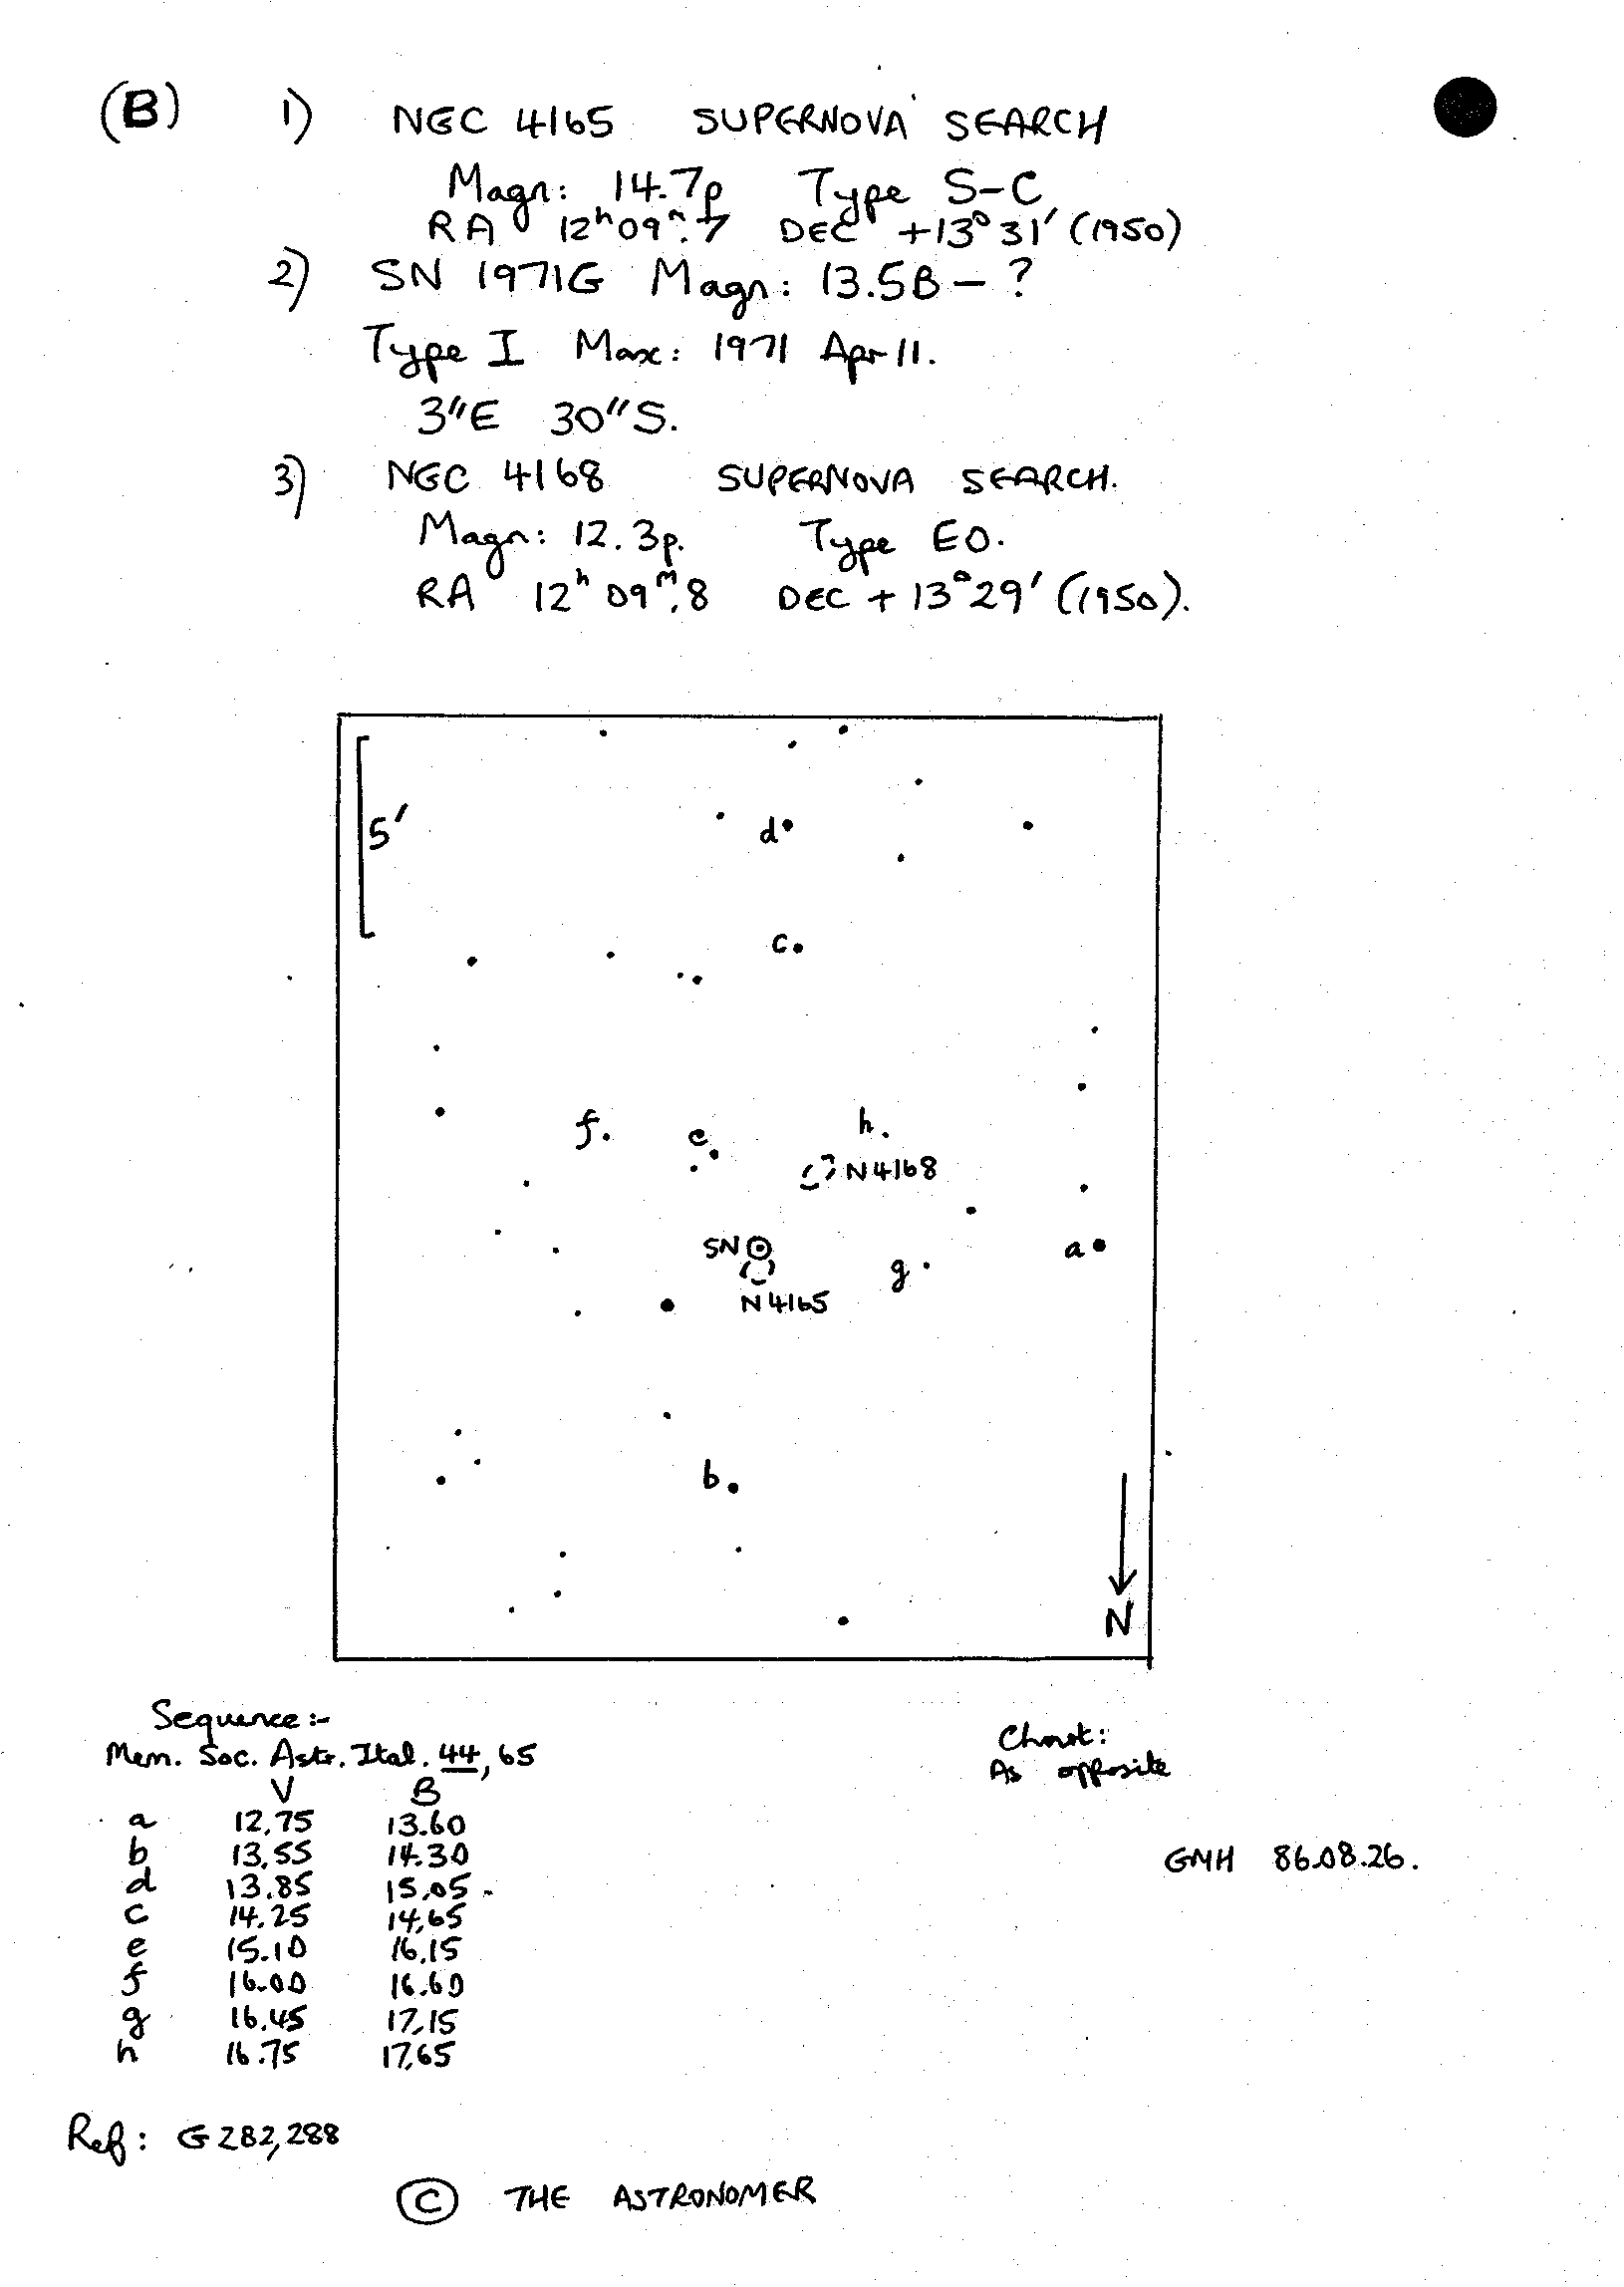 (B) 1) NGC 4165 SUPERNOVA SEARCH
Magn: 14.7p Type S-C
RA 12h09m.7 DEC +13°31′ (1950)
2) SN 1971G Magn: 13.5B - ?
Type I Max: 1971 Apr 11.
3″E 30″S.
3) NGC 4168 SUPERNOVA SEARCH.
Magn: 12.3p. Type E0.
RA 12h 09m.8 DEC + 13°29′ (1950).
5′
d
c
f
e
h
N4168
SN
a
g
N4165
b
N
Sequence:-
Mem. Soc. Astr. Ital. 44, 65
V B
a 12.75 13.60
b 13.55 14.30
d 13.85 15.05
c 14.25 14.65
e 15.10 16.15
f 16.00 16.60
g 16.45 17.15
h 16.75 17.65
Chart:
As opposite
GMH 86.08.26.
Ref: G282,288
© THE ASTRONOMER